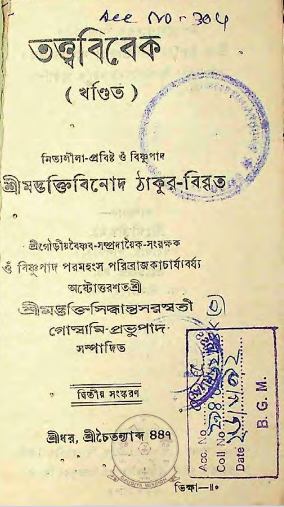 Acc No - 304
তত্ত্ববিবেক
( খণ্ডিত )
নিত্যলীলা-প্রবিষ্ট ওঁ বিষ্ণুপাদ
শ্রীমদ্ভক্তিবিনোদ ঠাকুর-বিবৃত
শ্রীগৌড়ীয়বৈষ্ণব-সম্প্রদায়ৈক-সংরক্ষক
ওঁ বিষ্ণুপাদ পরমহংস পরিব্রাজকাচার্য্যবর্য্য
অষ্টোত্তরশতশ্রী
শ্রীমদ্ভক্তিসিদ্ধান্তসরস্বতী
গোস্বামি-প্রভুপাদ-
সম্পাদিত
দ্বিতীয় সংস্করণ
শ্রীধর, শ্রীচৈতন্যাব্দ ৪৪৭
ভিক্ষা—॥০
Acc. No
Coll No
Date
B. G. M.